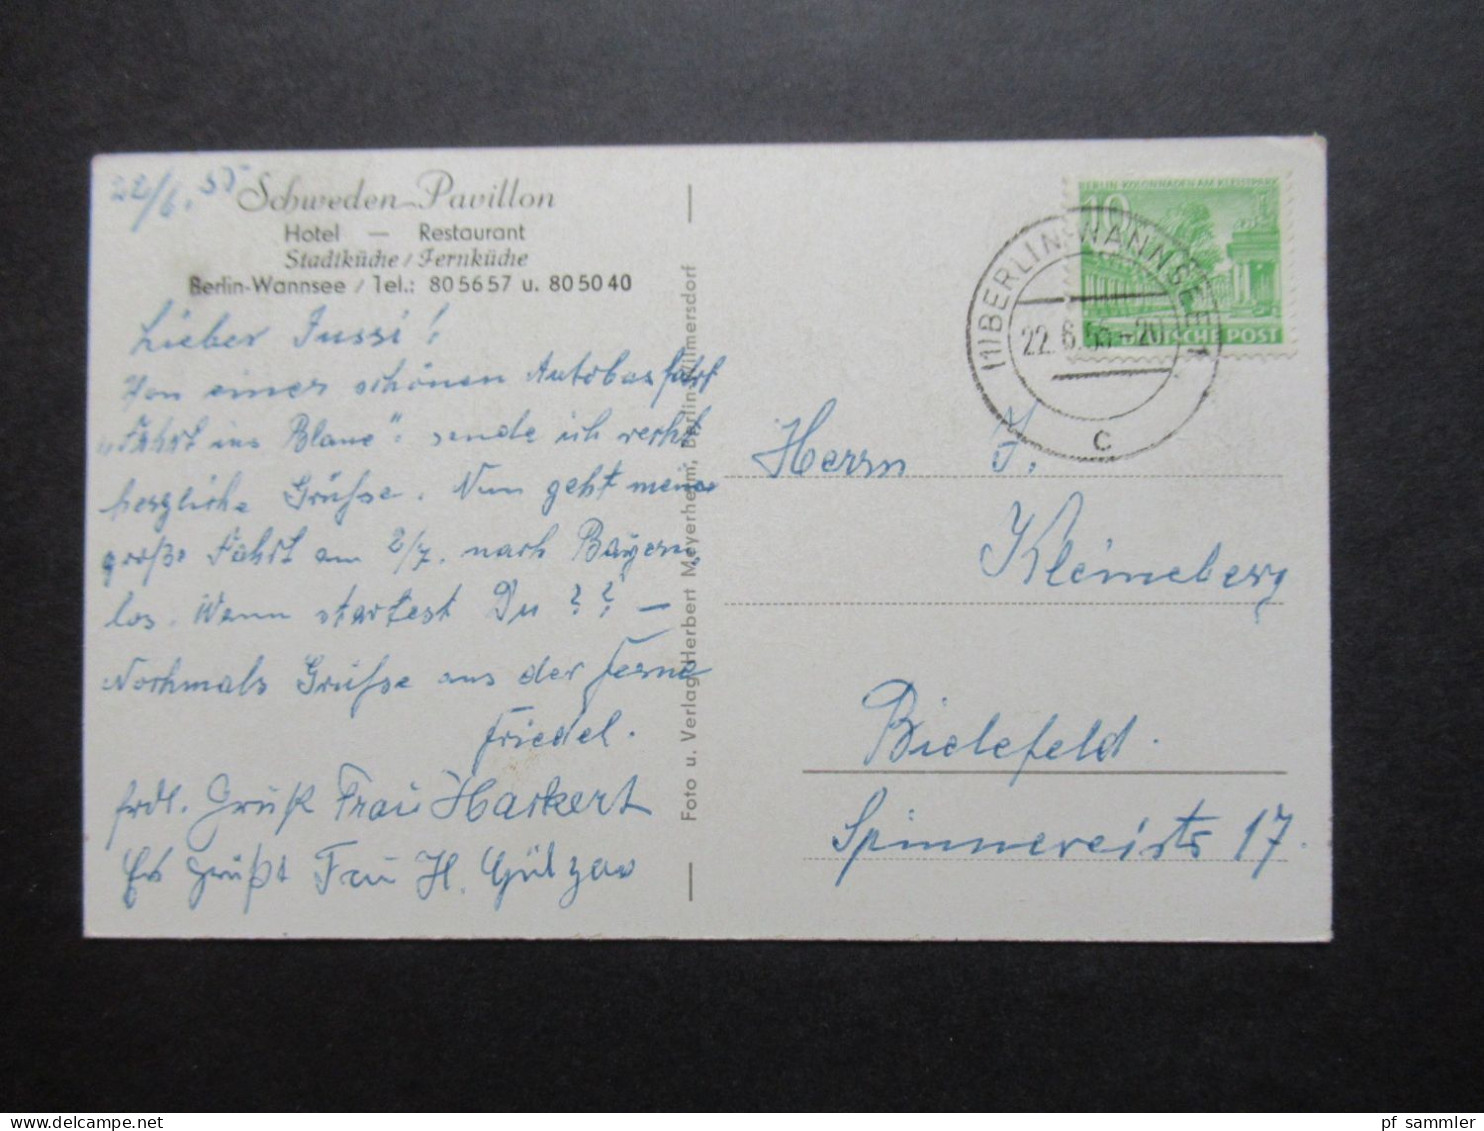 22/6. 55
Schweden-Pavillon
Hotel — Restaurant
Stadtküche / Fernküche
Berlin-Wannsee / Tel.: 80 56 57 u. 80 50 40
Lieber Jussi!
Von einer schönen Autobusfahrt
„Fahrt ins Blaue“. sende ich recht
herzliche Grüsse. Nun geht meine
große Fahrt am 2/7. nach Bayern
los. Wann startest Du ? ? —
Nochmals Grüsse aus der Ferne
Friedel.
frdl. Gruß Frau Harkert
Es grüßt Frau H. Gülzow
Foto u. Verlag Herbert Meyerheim, Berlin-Wilmersdorf
BERLIN-KOLONNADEN AM KLEISTPARK
10
DEUTSCHE POST
(1) BERLIN-WANNSEE 1
22. 6. 55 -20
c
Herrn J.
Kleineberg
Bielefeld.
Spinnereistr 17.
pf_sammler